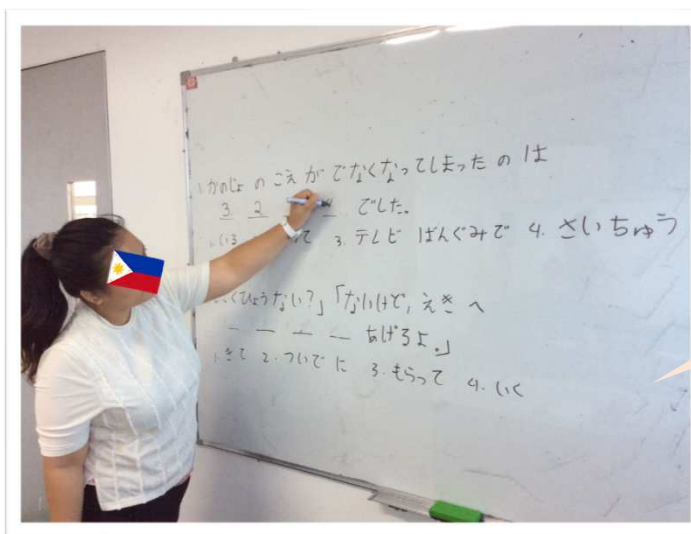 1. かのじょ の こえ が でなくなってしまった の は
3 2 _ _ でした。
1. いる て 3. テレビ ばんぐみで 4. さいちゅう
くひょうない?」「ないけど, えき へ
_ _ _ _ あげるよ。」
1. きて 2. ついで に 3. もらって 4. いく